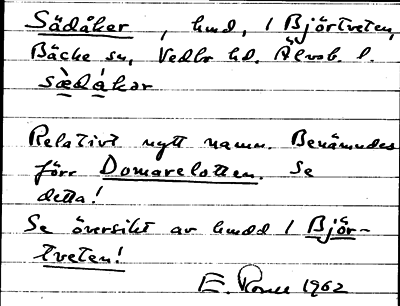 Sädåker, hmd, i Björtveten,
Bäcke sn, Vedbo hd. Älvsb. l.
sèdákar
Relativt nytt namn. Benämndes
förr Domarelotten. Se
detta!
Se översikt av hmdd i Björ-
tveten!
E. 1962